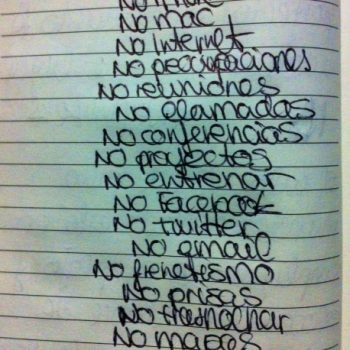 No iPhone
No mac
No Internet
No preocupaciones
No reuniones
No llamadas
No conferencias
No proyectos
No entrenar
No Facebook
No twitter
No gmail
No frenetismo
No prisas
No trasnochar
No mapas